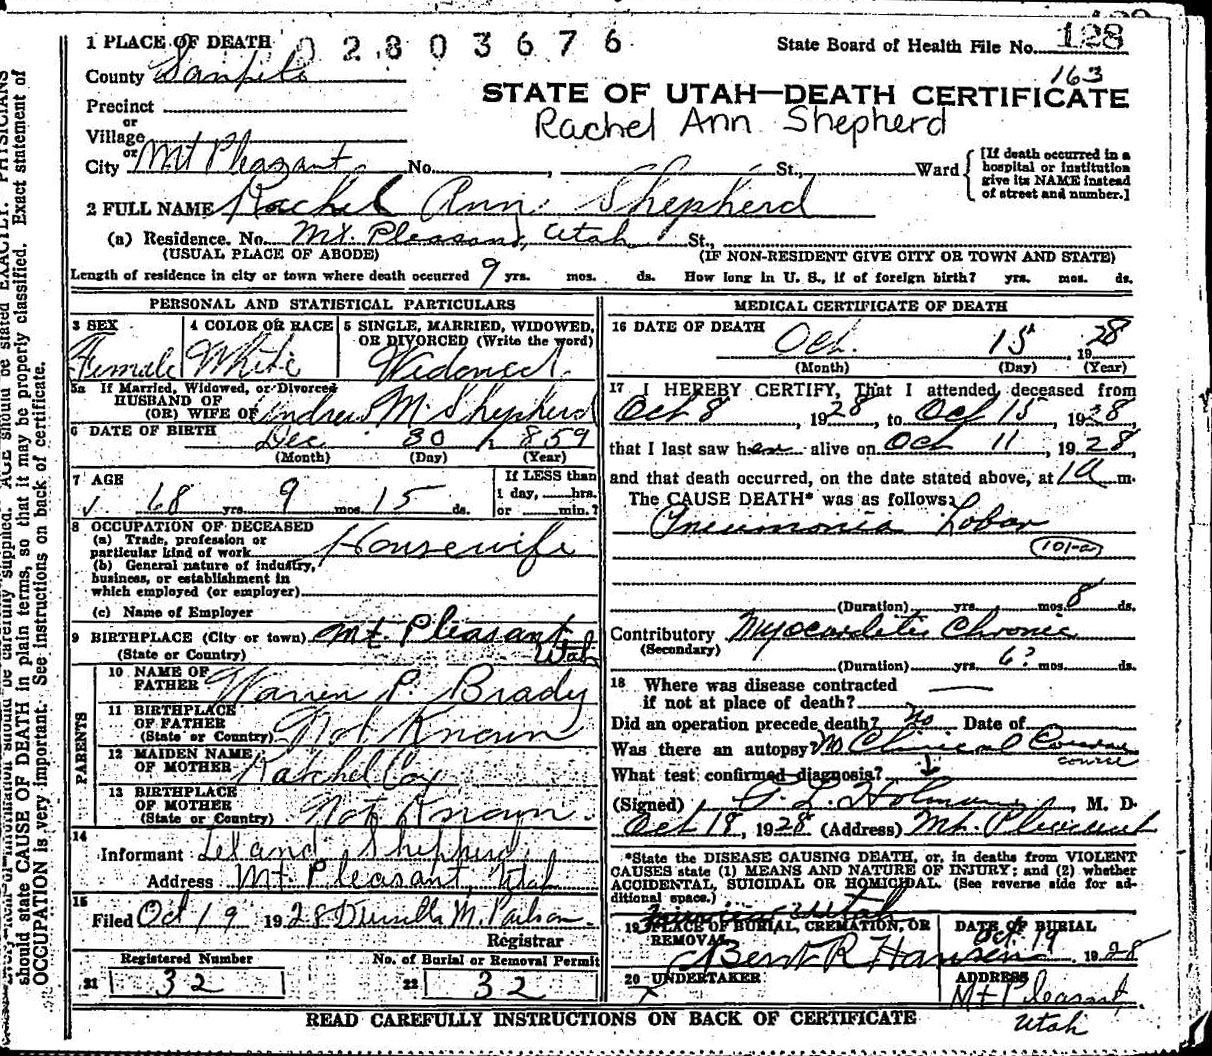 1 PLACE OF DEATH 02803676
State Board of Health File No. 128
163
County Sanpete
STATE OF UTAH—DEATH CERTIFICATE
Rachel Ann Shepherd
Precinct
or
Village
or
City Mt Pleasant No. , St., Ward
[If death occurred in a
hospital or institution
give its NAME instead
of street and number.]
2 FULL NAME Rachel Ann Shepherd
(a) Residence. No. Mt. Pleasant, Utah St.,
(USUAL PLACE OF ABODE) (IF NON-RESIDENT GIVE CITY OR TOWN AND STATE)
Length of residence in city or town where death occurred 9 yrs. mos. ds. How long in U. S., if of foreign birth? yrs. mos. ds.
PERSONAL AND STATISTICAL PARTICULARS
3 SEX
Female
4 COLOR OR RACE
White
5 SINGLE, MARRIED, WIDOWED,
OR DIVORCED (Write the word)
Widowed
5a If Married, Widowed, or Divorced
HUSBAND OF
(OR) WIFE OF Andrew M. Shepherd
6 DATE OF BIRTH Dec. 30 1859
(Month) (Day) (Year)
7 AGE
68 yrs. 9 mos. 15 ds.
If LESS than
1 day, hrs.
or min.?
8 OCCUPATION OF DECEASED
(a) Trade, profession or
particular kind of work Housewife
(b) General nature of industry,
business, or establishment in
which employed (or employer)
(c) Name of Employer
9 BIRTHPLACE (City or town) Mt. Pleasant
(State or Country) Utah
PARENTS
10 NAME OF
FATHER Warren P. Brady
11 BIRTHPLACE
OF FATHER
(State or Country) Not Known
12 MAIDEN NAME
OF MOTHER Ratchel Cox
13 BIRTHPLACE
OF MOTHER
(State or Country) Not Known
14
Informant Leland Shepherd
Address Mt Pleasant, Utah
15
Filed Oct 19 1928
Registrar
Registered Number
21 32
No. of Burial or Removal Permit
22 32
MEDICAL CERTIFICATE OF DEATH
16 DATE OF DEATH
Oct. 15 1928
(Month) (Day) (Year)
17 I HEREBY CERTIFY, That I attended deceased from
Oct 8, 1928, to Oct 15, 1928
that I last saw her alive on Oct 11, 1928,
and that death occurred, on the date stated above, at 1a m.
The CAUSE DEATH* was as follows:
Pneumonia Lobar
101-a
(Duration) yrs. mos. 8 ds.
Contributory Myocarditis Chronic
(Secondary)
(Duration) yrs. 6? mos. ds.
18 Where was disease contracted
if not at place of death?
Did an operation precede death? No Date of
Was there an autopsy? No Clinical Course
course
What test confirmed diagnosis?
(Signed) L. Holman, M. D.
Oct 18, 1928 (Address) Mt. Pleasant
*State the DISEASE CAUSING DEATH, or, in deaths from VIOLENT
CAUSES state (1) MEANS AND NATURE OF INJURY; and (2) whether
ACCIDENTAL, SUICIDAL OR HOMICIDAL. (See reverse side for ad-
ditional space.)
Fairview Utah
19 PLACE OF BURIAL, CREMATION, OR
REMOVAL
DATE OF BURIAL
Oct 19 1928
Bent R Hansen
20 UNDERTAKER
ADDRESS
Mt Pleasant
Utah
READ CAREFULLY INSTRUCTIONS ON BACK OF CERTIFICATE
should state CAUSE OF DEATH in plain terms, so that it may be properly classified. Exact statement of
OCCUPATION is very important. See instructions on back of certificate.